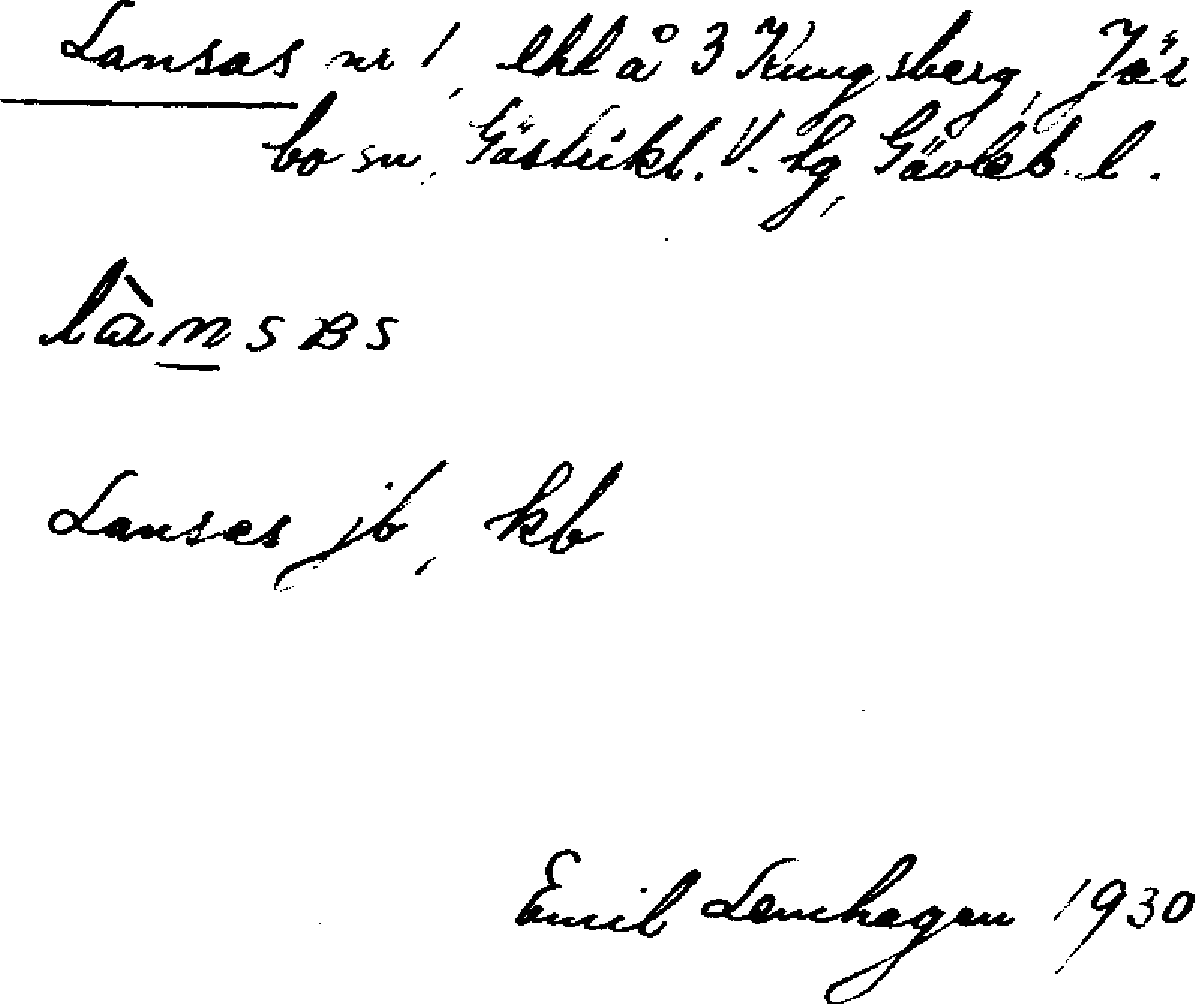 Lansas nr 1, ehl å 3 Kungsberg, Jär
bo sn, Gästrikl. V. hg, Gävleb. l.
lànsɐs
Lansas jb, kb
Emil Lemhagen 1930